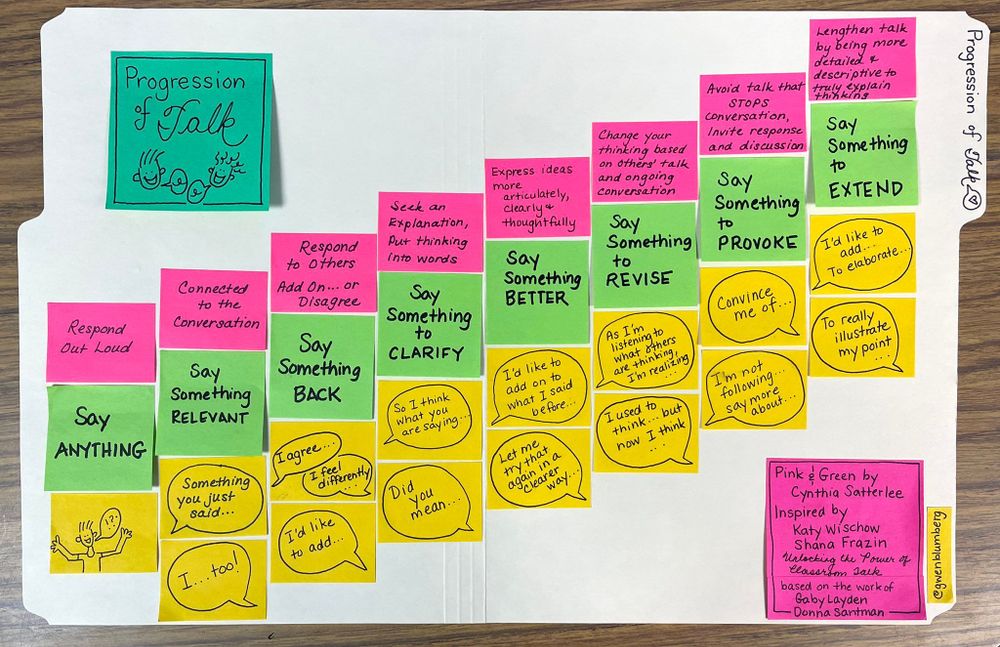 Progression
of Talk
Respond
Out Loud
Say
ANYTHING
!?.
Connected
to the
Conversation
Say
Something
RELEVANT
Something
you just
said...
I....too!
Respond
to Others
Add On... or
Disagree
Say
Something
BACK
I agree...
I feel
differently...
I'd like
to add...
Seek an
Explanation,
Put thinking
into words
Say
Something
to
CLARIFY
So I think
what you
are saying...
Did
you
mean...
Express ideas
more
articulately,
clearly &
thoughtfully
Say
Something
BETTER
I'd like to
add on to
what I said
before...
Let me
try that
again in a
clearer
way...
Change your
thinking based
on Others' talk
and ongoing
conversation
Say
Something
to
REVISE
As I'm
listening to
what others
are thinking,
I'm realizing...
I used to
think...but
now I think
...
Avoid talk that
STOPS
conversation,
Invite response
and discussion
Say
Something
to
PROVOKE
Convince
me of...
I'm not
following...
say more
about...
Lengthen talk
by being more
detailed &
descriptive to
truly explain
thinking
Say
Something
to
EXTEND
I'd like to
add...
To elaborate...
To really
illustrate
my point
...
Progression of Talk
Pink & Green by
Cynthia Satterlee
Inspired by
Katy Wischow
Shana Frazin
Unlocking the Power of
Classroom Talk
based on the work of
Gaby Layden
Donna Santman
@gwenblumberg